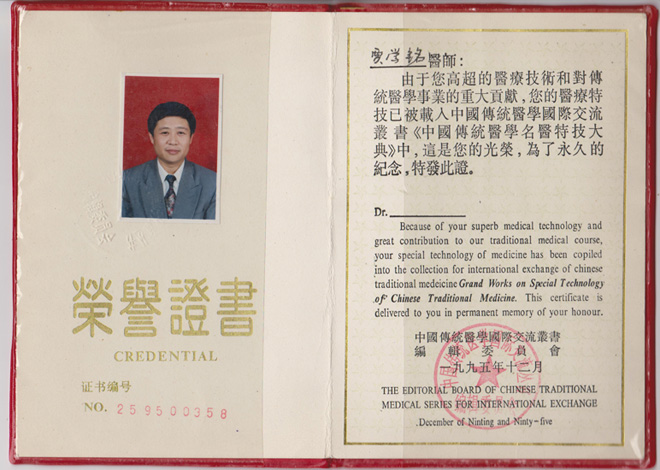 榮譽證書
CREDENTIAL
证书编号
NO. 259500358
醫師：
由于您高超的醫療技術和對傳
統醫學事業的重大貢獻，您的醫療特
技已被載入中國傳統醫學國際交流
叢書《中國傳統醫學名醫特技大
典》中，這是您的光榮，為了永久的
紀念，特發此證。
Dr.
Because of your superb medical technology and
great contribution to our traditional medical course,
your special technology of medicine has been copiled
into the collection for international exchange of chinese
traditional medeicine Grand Works on Special Technology
of Chinese Traditional Medicine. This certificate is
delivered to you in permanent memory of your honour.
中國傳統醫學國際交流叢書
編輯委員會
一九九五年十二月
THE EDITORIAL BOARD OF CHINESE TRADITIONAL
MEDICAL SERIES FOR INTERNATIONAL EXCHANGE
.December of Ninting and Ninty-five